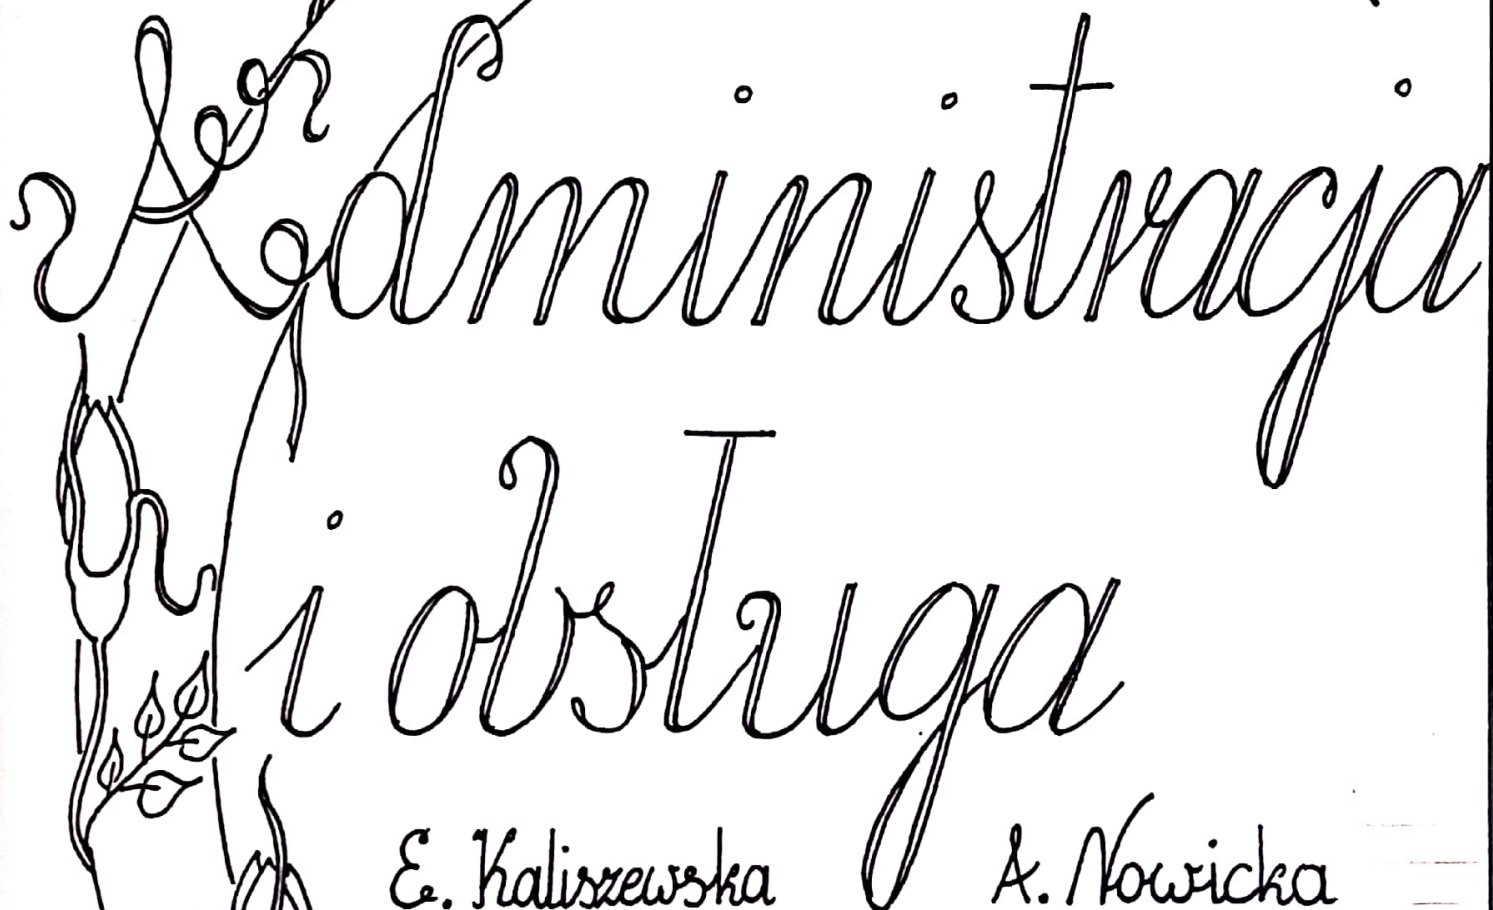 Administracja
i obsługa
E. Kaliszewska A. Nowicka